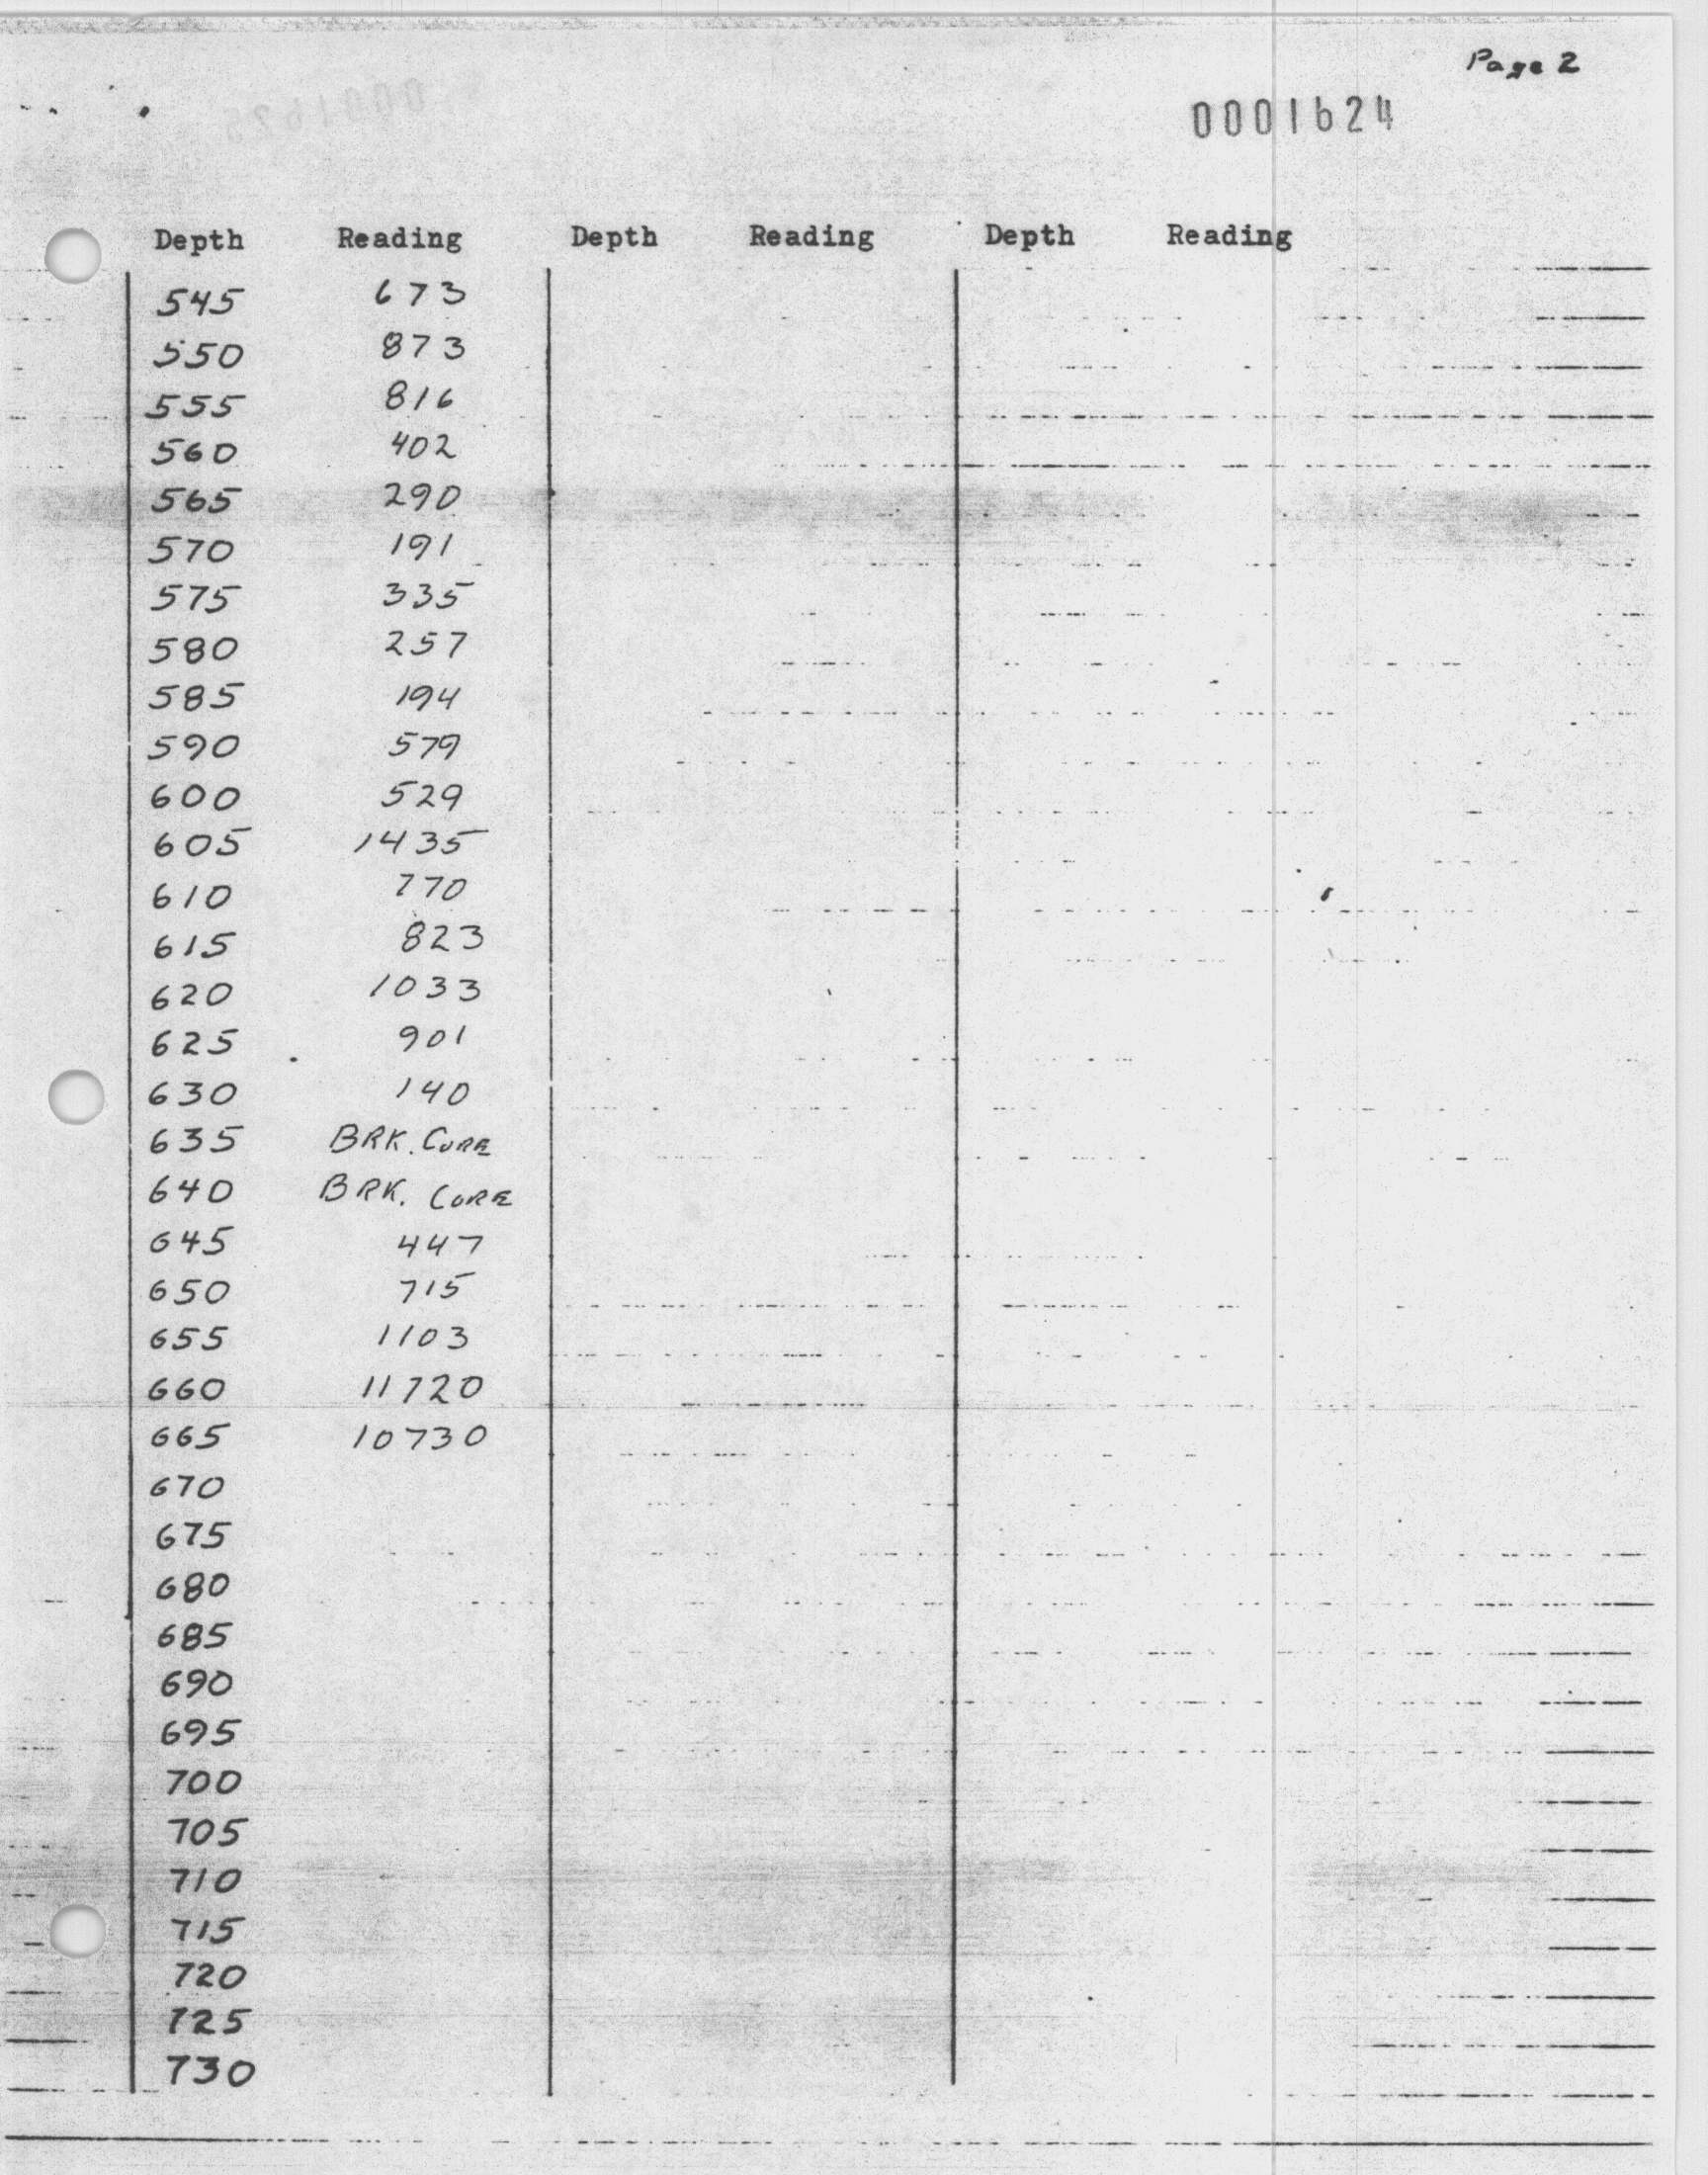 Page 2
0001624
Depth Reading Depth Reading Depth Reading
545 673
550 873
555 816
560 402
565 290
570 191
575 335
580 257
585 194
590 579
600 529
605 1435
610 770
615 823
620 1033
625 901
630 140
635 BRK. CORE
640 BRK. CORE
645 447
650 715
655 1103
660 11720
665 10730
670
675
680
685
690
695
700
705
710
715
720
725
730